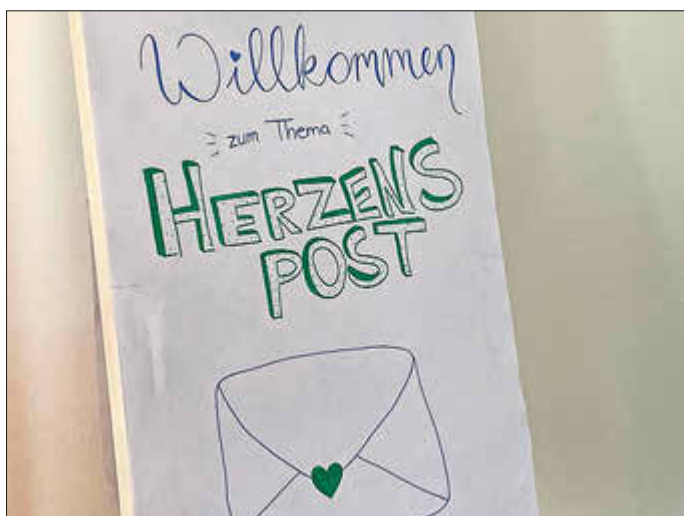 Willkommen
zum Thema
HERZENS
POST